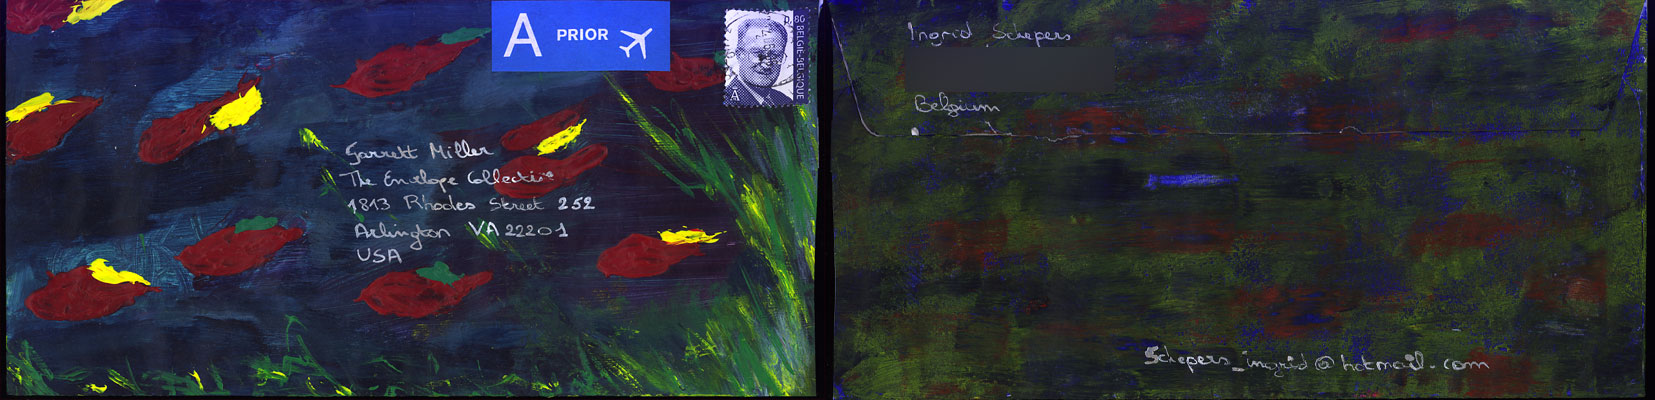 A PRIOR
0,80
BELGIE-BELGIQUE
A
Garrett Miller
The Envelope Collective
1813 Rhodes Street 252
Arlington VA 22201
USA
Ingrid Schepers
Belgium
Schepers_ingrid@hotmail.com